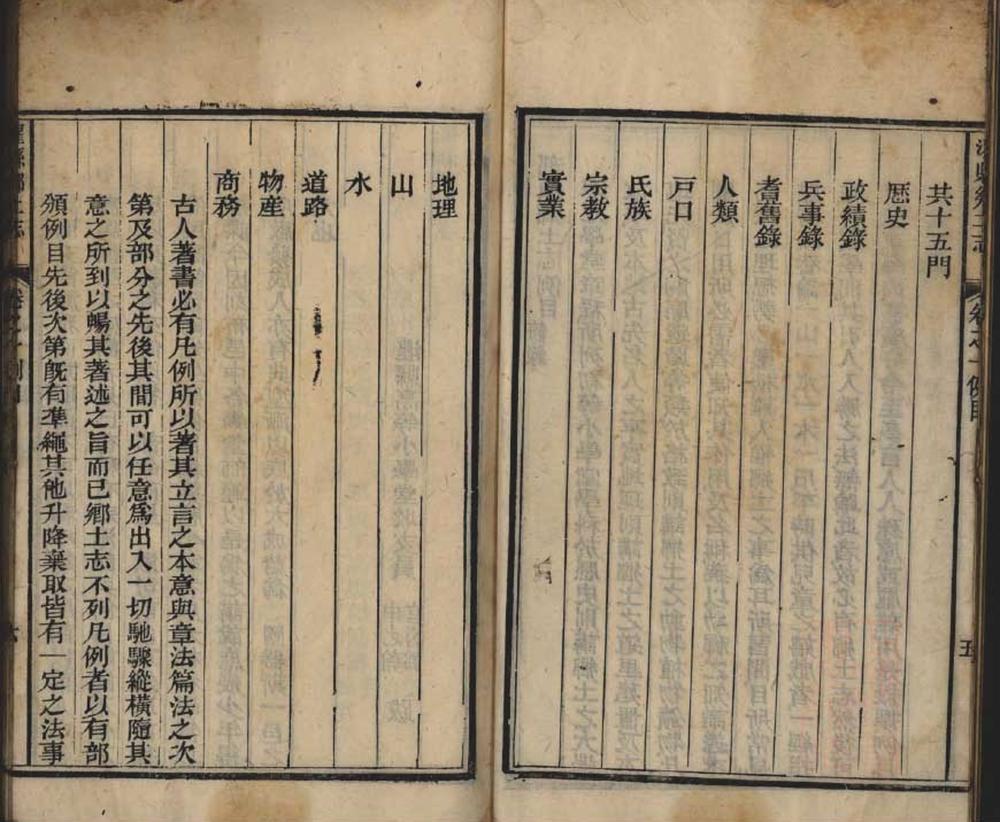 共十五門
歷史
政績錄
兵事錄
耆舊錄
人類
戶口
氏族
宗教
實業
五
地理
山
水
道路
物產
商務
古人著書必有凡例所以著其立言之本意與章法篇法之次
第及部分之先後其間可以任意爲出入一切馳驟縱橫隨其
意之所到以暢其著述之旨而已鄉土志不列凡例者以有部
頒例目先後次第旣有準繩其他升降棄取皆有一定之法事